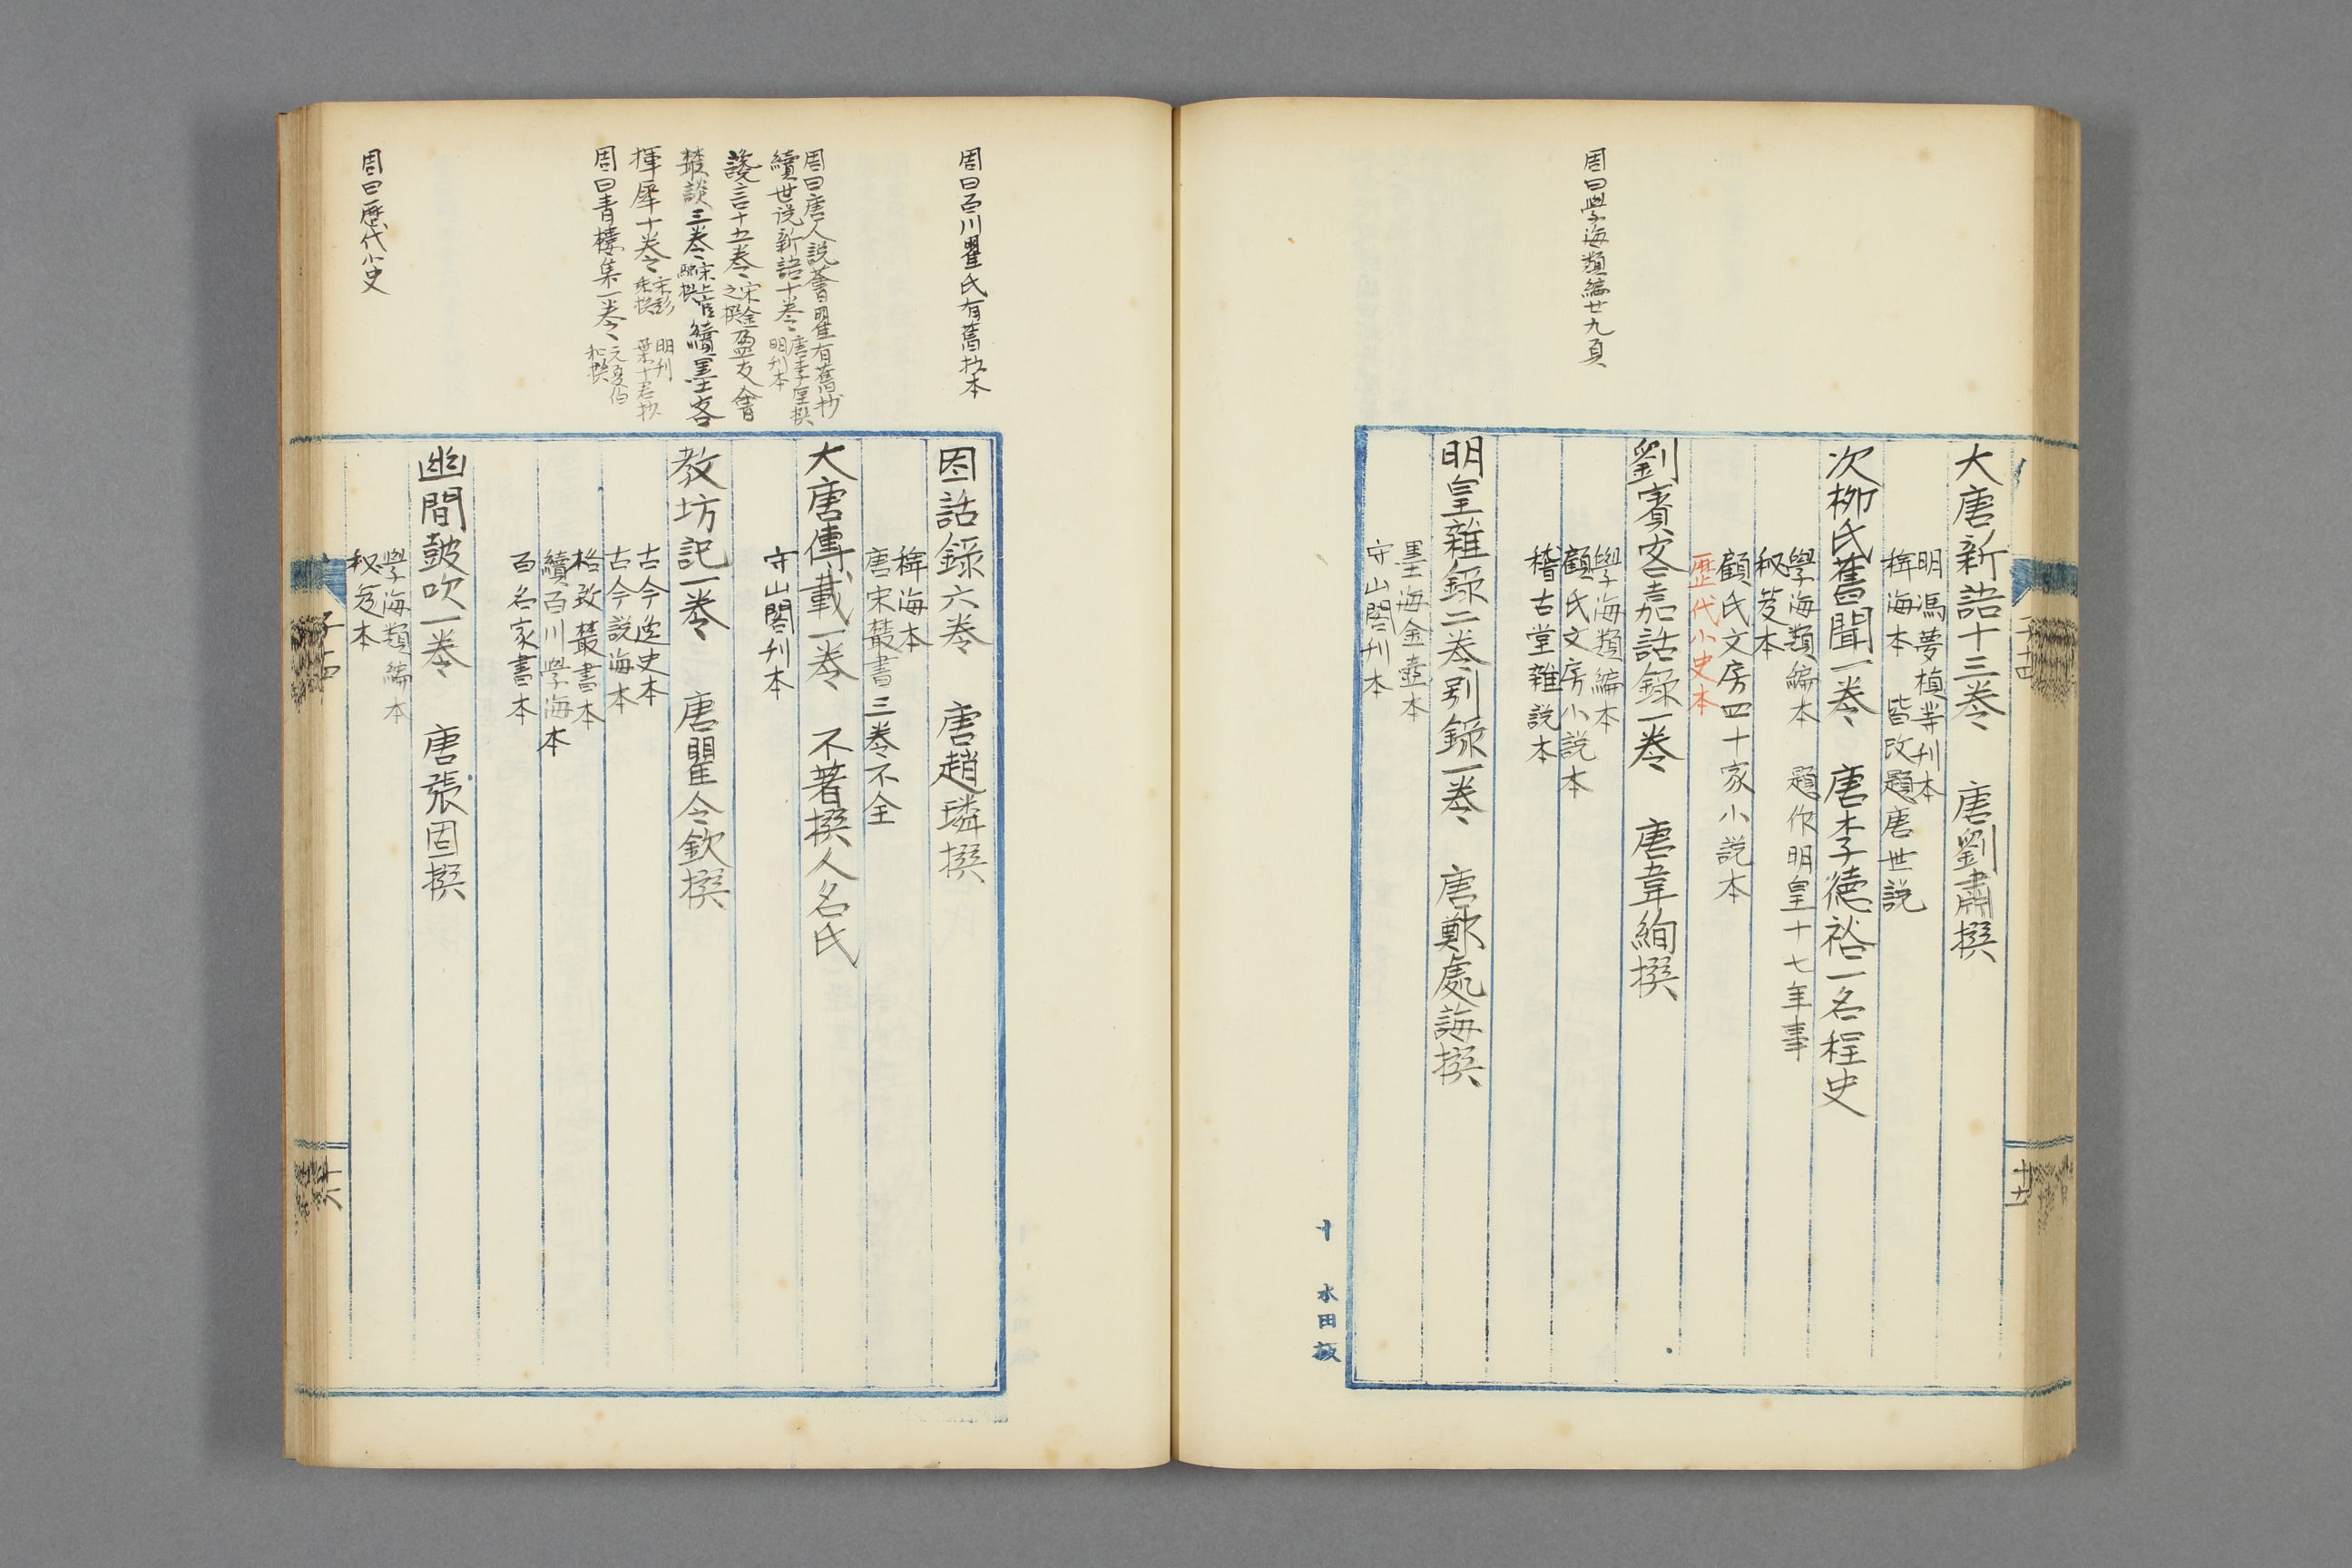 周曰學海類編廿九頁
大唐新語十三卷 唐劉肅撰
明馮夢禎等刊本
稗海本 皆改題唐世説
次柳氏舊聞一卷 唐李德裕一名程史
學海類編本 題作明皇十七年事
秘笈本
顧氏文房四十家小説本
歷代小史本
劉賓客嘉話錄一卷 唐韋絢撰
學海類編本
顧氏文房小説本
稽古堂雜説本
明皇雜錄二卷別錄一卷 唐鄭處誨撰
墨海金壺本
守山閣刊本
十 水田版
周曰百川瞿氏有舊抄本
周曰唐人説薈瞿有舊抄
續世説新語十卷 唐李垕撰 明刊本
談言十五卷 宋金盈之撰 友會
叢談三卷 宋上官融撰 續墨客
揮犀十卷 宋彭乘撰 明刊 葉十君抄
周曰青樓集一卷 元夏伯和撰
周曰歷代小史
因話錄六卷 唐趙璘撰
稗海本
唐宋叢書三卷不全
大唐傳載一卷 不著撰人名氏
守山閣刊本
教坊記一卷 唐瞿令欽撰
古今逸史本
古今説海本
格致叢書本
續百川學海本
百名家書本
幽間鼓吹一卷 唐張固撰
學海類編本
秘笈本